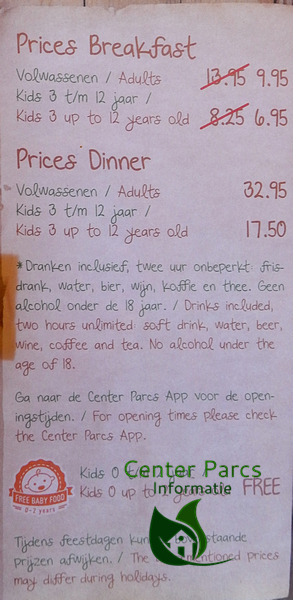 Prices Breakfast
Volwassenen / Adults 13.95 9.95
Kids 3 t/m 12 jaar /
Kids 3 up to 12 years old 8.25 6.95
Prices Dinner
Volwassenen / Adults 32.95
Kids 3 t/m 12 jaar /
Kids 3 up to 12 years old 17.50
*Dranken inclusief, twee uur onbeperkt: fris-
drank, water, bier, wijn, koffie en thee. Geen
alcohol onder de 18 jaar. / Drinks included,
two hours unlimited: soft drink, water, beer,
wine, coffee and tea. No alcohol under the
age of 18.
Ga naar de Center Parcs App voor de open-
ingstijden. / For opening times please check
the Center Parcs App.
FREE BABY FOOD
0-2 years
Kids 0
Kids 0 up to FREE
Center Parcs
Informatie
Tijdens feestdagen staande
prijzen afwijken. / The prices
may differ during holidays.